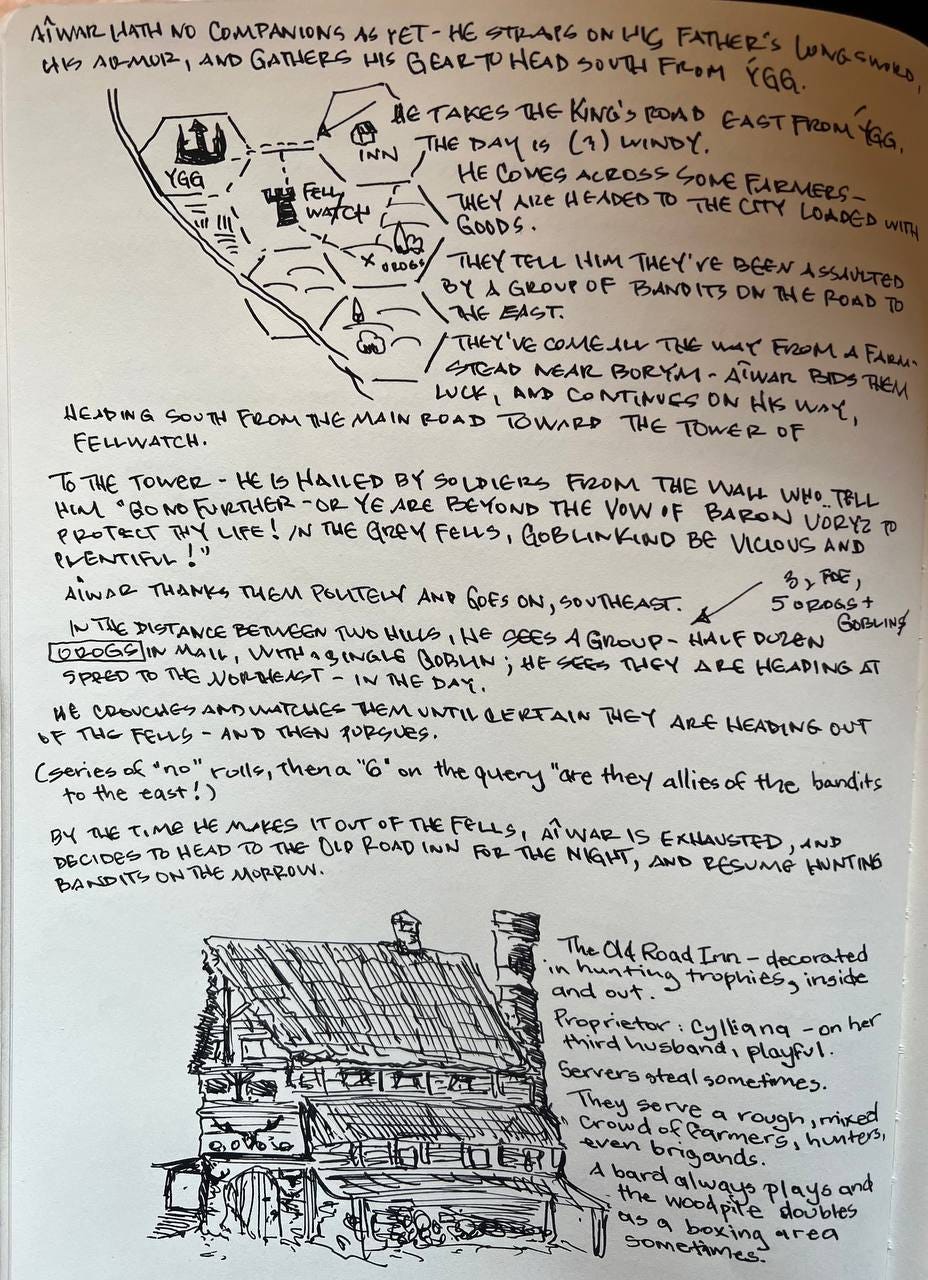 AÎWAR HATH NO COMPANIONS AS YET - HE STRAPS ON HIS FATHER'S LONGSWORD,
HIS ARMOR, AND GATHERS HIS GEAR TO HEAD SOUTH FROM YGG.
HE TAKES THE KING'S ROAD EAST FROM YGG,
THE DAY IS (3) WINDY.
HE COMES ACROSS SOME FARMERS -
THEY ARE HEADED TO THE CITY LOADED WITH
GOODS.
THEY TELL HIM THEY'VE BEEN ASSAULTED
BY A GROUP OF BANDITS ON THE ROAD TO
THE EAST.
THEY'VE COME ALL THE WAY FROM A FARM-
STEAD NEAR BORYM - AÎWAR BIDS THEM
LUCK, AND CONTINUES ON HIS WAY,
YGG
INN
FELL
WATCH
X OROGS
HEADING SOUTH FROM THE MAIN ROAD TOWARD THE TOWER OF
FELLWATCH.
TO THE TOWER - HE IS HAILED BY SOLDIERS FROM THE WALL WHO TELL
HIM "GO NO FURTHER - OR YE ARE BEYOND THE VOW OF BARON VORYZ TO
PROTECT THY LIFE! IN THE GREY FELLS, GOBLINKIND BE VICIOUS AND
PLENTIFUL!"
AÎWAR THANKS THEM POLITELY AND GOES ON, SOUTHEAST.
3, FOE,
5 OROGS +
GOBLINS
IN THE DISTANCE BETWEEN TWO HILLS, HE SEES A GROUP - HALF DOZEN
OROGS IN MAIL, WITH A SINGLE GOBLIN; HE SEES THEY ARE HEADING AT
SPEED TO THE NORTHEAST - IN THE DAY.
HE CROUCHES AND WATCHES THEM UNTIL CERTAIN THEY ARE HEADING OUT
OF THE FELLS - AND THEN PURSUES.
(series of "no" rolls, then a "6" on the query "are they allies of the bandits
to the east!)
BY THE TIME HE MAKES IT OUT OF THE FELLS, AÎWAR IS EXHAUSTED, AND
DECIDES TO HEAD TO THE OLD ROAD INN FOR THE NIGHT, AND RESUME HUNTING
BANDITS ON THE MORROW.
The Old Road Inn - decorated
in hunting trophies, inside
and out.
Proprietor: Cylliana - on her
third husband, playful.
Servers steal sometimes.
They serve a rough, mixed
crowd of farmers, hunters,
even brigands.
A bard always plays and
the woodpile doubles
as a boxing area
sometimes.